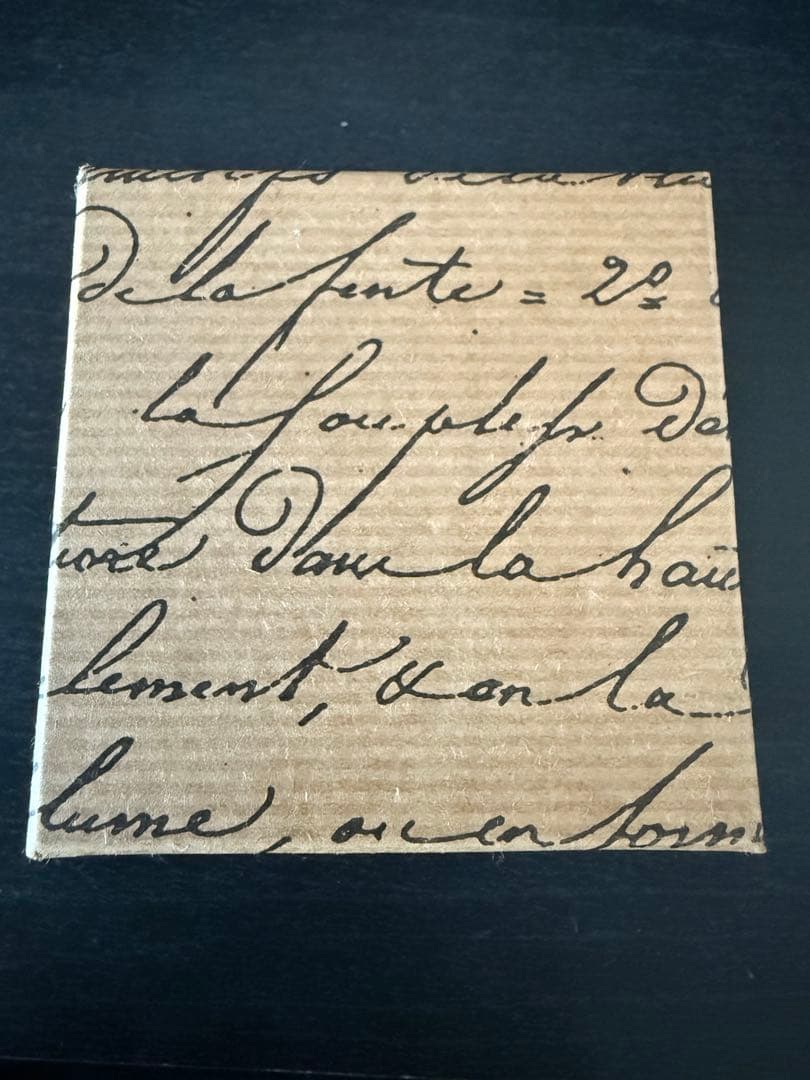 De la fente = 2º
la souplesse de
tore dans la hau
lement, & on la
lume, ou en form